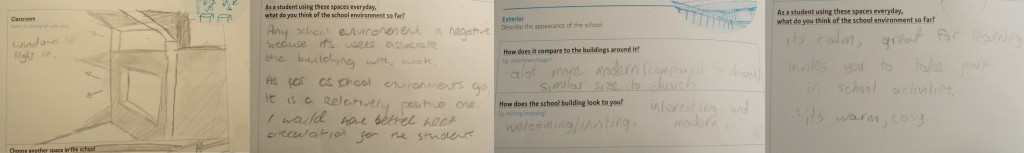 Classroom
windows
light in.
Choose another space in the school
As a student using these spaces everyday,
what do you think of the school environment so far?
Any school environment is negative
because it's users associate
the building with work.
As far as school environments go,
it is a relatively positive one.
I would have better heat
circulation for the students
Exterior
Describe the appearance of the school
How does it compare to the buildings around it?
alot more modern (compared to church)
similar size to church
How does the school building look to you?
welcoming/inviting, interesting and
modern.
As a student using these spaces everyday,
what do you think of the school environment so far?
its calm, great for learning
invites you to take part
in school activities.
its warm, cosy